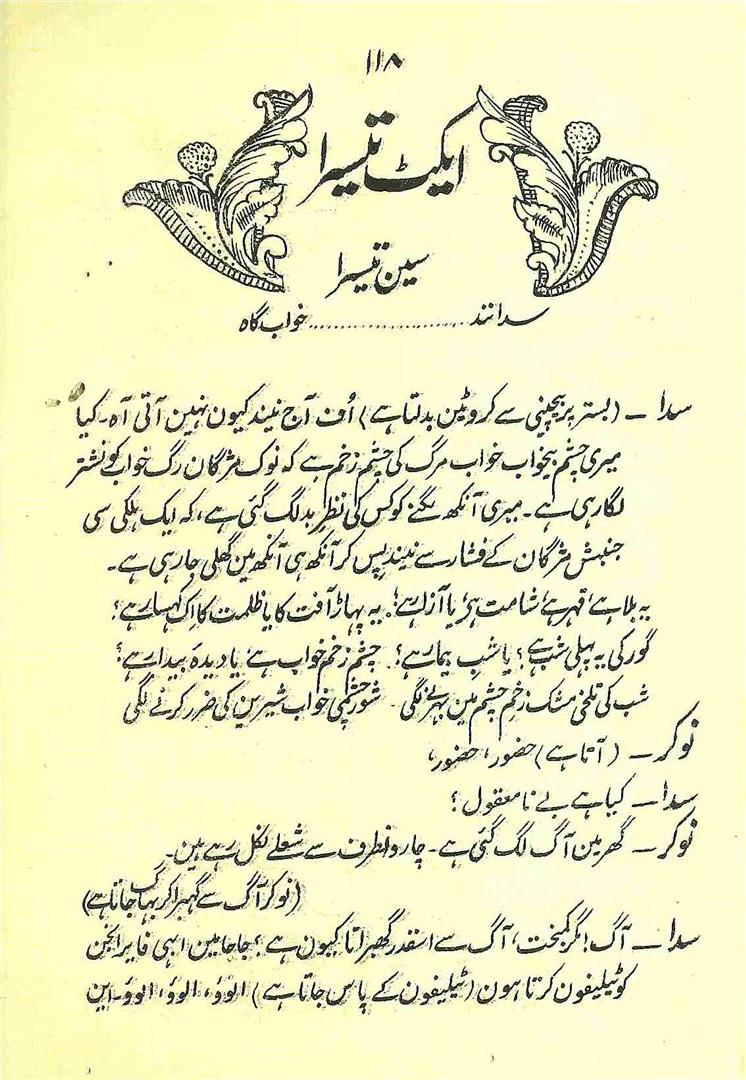 ۱۱۸
ایکٹ تیسرا
سین تیسرا
سدانند......................خواب گاہ
سدا ـ (بستر پر بیچینی سے کروٹین بدلتا ہے) اُف آج نیند کیون نہین آتی آہ۔ کیا
میری چشم بیخواب خواب مرگ کی چشم زخم ہے کہ نوک مژگان رگ خواب کو نشتر
لگا رہی ہے۔ میری آنکھ لگنے کو کس کی نظر بد لگ گئی ہے، کہ ایک ہلکی سی
جنبش مژگان کے فشار سے نیند پس کر آنکھ ہی آنکھ مین گھلی جا رہی ہے۔
یہ بلا ہے قہر ہے شامت ہے یا آزار ہے؟ یہ پہاڑ آفت کا یا ظلمت کا اِک کہسار ہے؟
گور کی یہ پہلی شب ہے؟ یا شبِ بیمار ہے؟ چشم زخم خواب ہے یا دیدہ بیدار ہے؟
شب کی تلخی مشک زخم چشم مین بہرنے لگی شور چشمی خواب شیرین کی ضرر کرنے لگی
نوکر ـ (آتا ہے) حضور، حضور،
سدا ـ کیا ہے بے نامعقول؟
نوکر ـ گھر مین آگ لگ گئی ہے۔ چارونطرف سے شعلے نکل رہے ہین۔
(نوکر آگ سے گہبرا کر بہاگ جاتا ہے)
سدا ـ آگ! اگر کمبخت، آگ سے اسقدر گھبراتا کیون ہے؟ جا جا مین ابہی فایر انجن
کو ٹیلیفون کرتا ہون (ٹیلیفون کے پاس جاتا ہے) الوُو، الووُ، الووُ۔ این